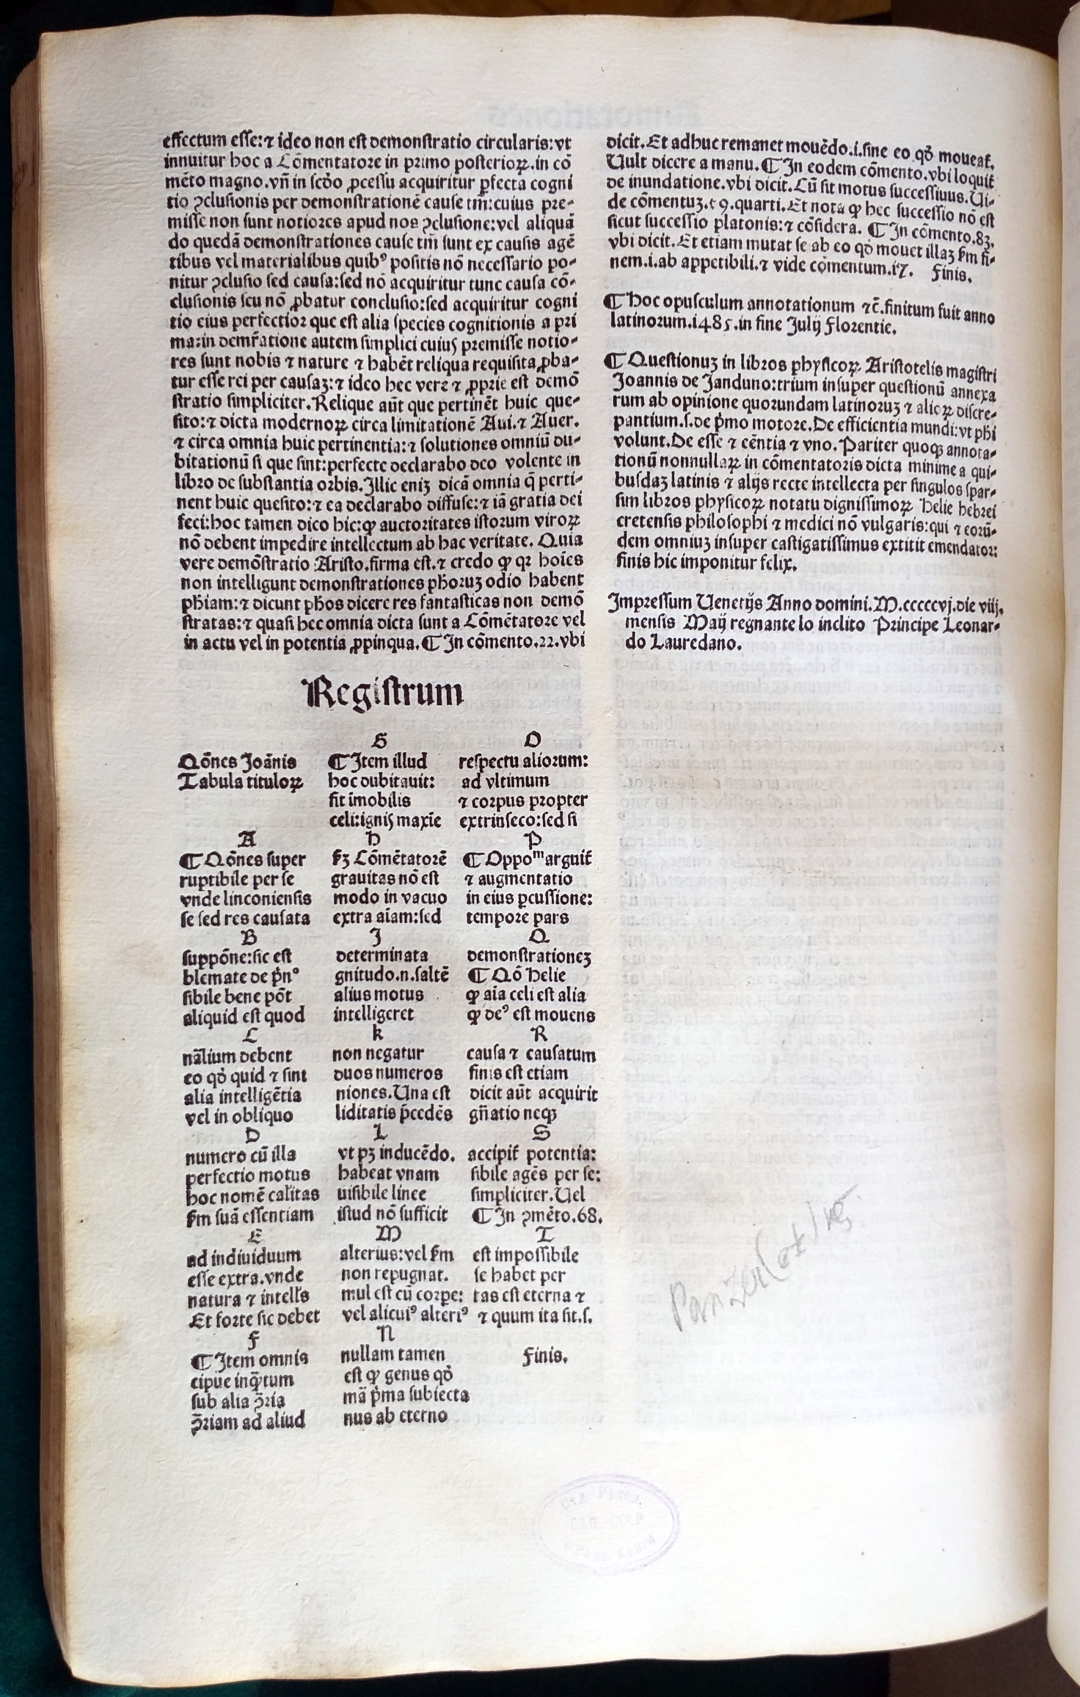 effectum esse:⁊ ideo non est demonstratio circularis:vt
innuitur hoc a Cōmentatore in primo posterioꝝ.in cō
mēto magno.vn̄ in scḋo ꝓcessu acquiritur ꝑfecta cogni
tio ꝯclusionis per demonstrationē cause tm̄:cuius pre-
misse non sunt notiores apud nos ꝯclusione:vel aliquā
do quedā demonstrationes cause tm̄ sunt ex causis agē
tibus vel materialibus quibꝰ positis nō necessario po-
nitur ꝯclusio sed causa:sed nō acquiritur tunc causa cō-
clusionis seu nō ꝓbatur conclusio:sed acquiritur cogni
tio eius perfectior que est alia species cognitionis a pri
ma:in demr̄atione autem simplici cuius premisse notio-
res sunt nobis ⁊ nature ⁊ habēt reliqua requisita ꝓba-
tur esse rei per causaꝫ:⁊ ideo hec vere ⁊ ꝓprie est demō
stratio simpliciter.Relique aūt que pertinēt huic que-
sito:⁊ dicta modernoꝝ circa limitationē Aui.⁊ Auer.
⁊ circa omnia huic pertinentia:⁊ solutiones omniū du-
bitationū si que sint:perfecte declarabo deo volente in
libro de substantia orbis.Illic eniꝫ dicā omnia q̄ perti-
nent huic quesito:⁊ ea declarabo diffuse:⁊ iā gratia dei
feci:hoc tamen dico hic:ꝙ auctoritates istorum viroꝝ
nō debent impedire intellectum ab hac veritate. Quia
vere demōstratio Aristo.firma est.⁊ credo ꝙ qꝛ hoīes
non intelligunt demonstrationes ph̄oruꝫ odio habent
ph̄iam:⁊ dicunt ph̄os dicere res fantasticas non demō
stratas:⁊ quasi hec omnia dicta sunt a Cōmētatore vel
in actu vel in potentia ꝓpinqua.¶ In cōmento.22.vbi
dicit.Et adhuc remanet mouēdo.i.sine eo qḋ moueat̄.
Uult dicere a manu.¶ In eodem cōmento.vbi loquit̄
de inundatione.vbi dicit.Cū sit motus successiuus.Ui-
de cōmentuꝫ.⁊ 9.quarti.Et nota ꝙ hec successio nō est
sicut successio platonis:⁊ cōsidera. ¶ In cōmento.83.
vbi dicit.Et etiam mutat se ab eo qḋ mouet illaꝫ ẜm fi-
nem.i.ab appetibili.⁊ vide cōmentum.17. Finis.
¶ Hoc opusculum annotationum ⁊c̄.finitum fuit anno
latinorum.1485.in fine Julij Florentie.
¶ Questionuꝫ in libros physicoꝝ Aristotelis magistri
Joannis de Janduno:trium insuper questionū annexa
rum ab opinione quorundam latinoruꝫ ⁊ alioꝝ discre-
pantium.s.de p̄mo motore.De efficientia mundi:vt ph̄i
volunt.De esse ⁊ cēntia ⁊ vno. Pariter quoqꝫ annota-
tionū nonnullaꝝ in cōmentatoris dicta minime a qui-
busdaꝫ latinis ⁊ alijs recte intellecta per singulos spar-
sim libros physicoꝝ notatu dignissimoꝝ Helie hebrei
cretensis philosophi ⁊ medici nō vulgaris:qui ⁊ eorū-
dem omniuꝫ insuper castigatissimus extitit emendator:
finis hic imponitur felix.
Impressum Uenetijs Anno domini.M.cccccvj.die viij.
mensis Maij regnante lo inclito Principe Leonar-
do Lauredano.
Registrum
Qōnes Joānis
Tabula tituloꝝ
A
¶ Qōnes super
ruptibile per se
vnde linconiensis
se sed res causata
B
suppōne:sic est
blemate de p̄nº
sibile bene pōt
aliquid est quod
C
nālium debent
eo qḋ quid ⁊ sint
alia intelligētia
vel in obliquo
D
numero cū illa
perfectio motus
hoc nomē calitas
ẜm suā essentiam
E
ad indiuiduum
esse extra.vnde
natura ⁊ intells
Et forte sic debet
F
¶ Item omnis
cipue inq̄tum
sub alia ꝯ̄ria
ꝯ̄riam ad aliud
G
¶ Item illud
hoc dubitauit:
fit īmobilis
celi:ignis maxīe
H
ẜꝫ Cōmētatorē
grauitas nō est
modo in vacuo
extra aīam:sed
I
determinata
gnitudo.n.saltē
alius motus
intelligeret
K
non negatur
duos numeros
niones.Una est
liditatis p̄cedēs
L
vt pꝫ inducēdo.
habeat vnam
uisibile lince
istud nō sufficit
M
alterius:vel ẜm
non repugnat.
mul est cū corpe:
vel alicuiꝰ alteriꝰ
N
nullam tamen
est ꝙ genus qḋ
mā p̄ma subiecta
nus ab eterno
O
respectu aliorum:
ad vltimum
⁊ corpus propter
extrinseco:sed si
P
¶ Oppoᵐ arguit̄
⁊ augmentatio
in eius ꝑcussione:
tempore pars
Q
demonstrationeꝫ
¶ Qō Helie
ꝙ aīa celi est alia
ꝙ deꝰ est mouens
R
causa ⁊ causatum
finis est etiam
dicit aūt acquirit
gn̄atio neqꝫ
S
accipit̄ potentia:
sibile agēs per se:
simpliciter.Uel
¶ In ꝯmēto.68.
T
est impossibile
se habet per
tas est eterna ⁊
⁊ quum ita sit.s.
Finis.